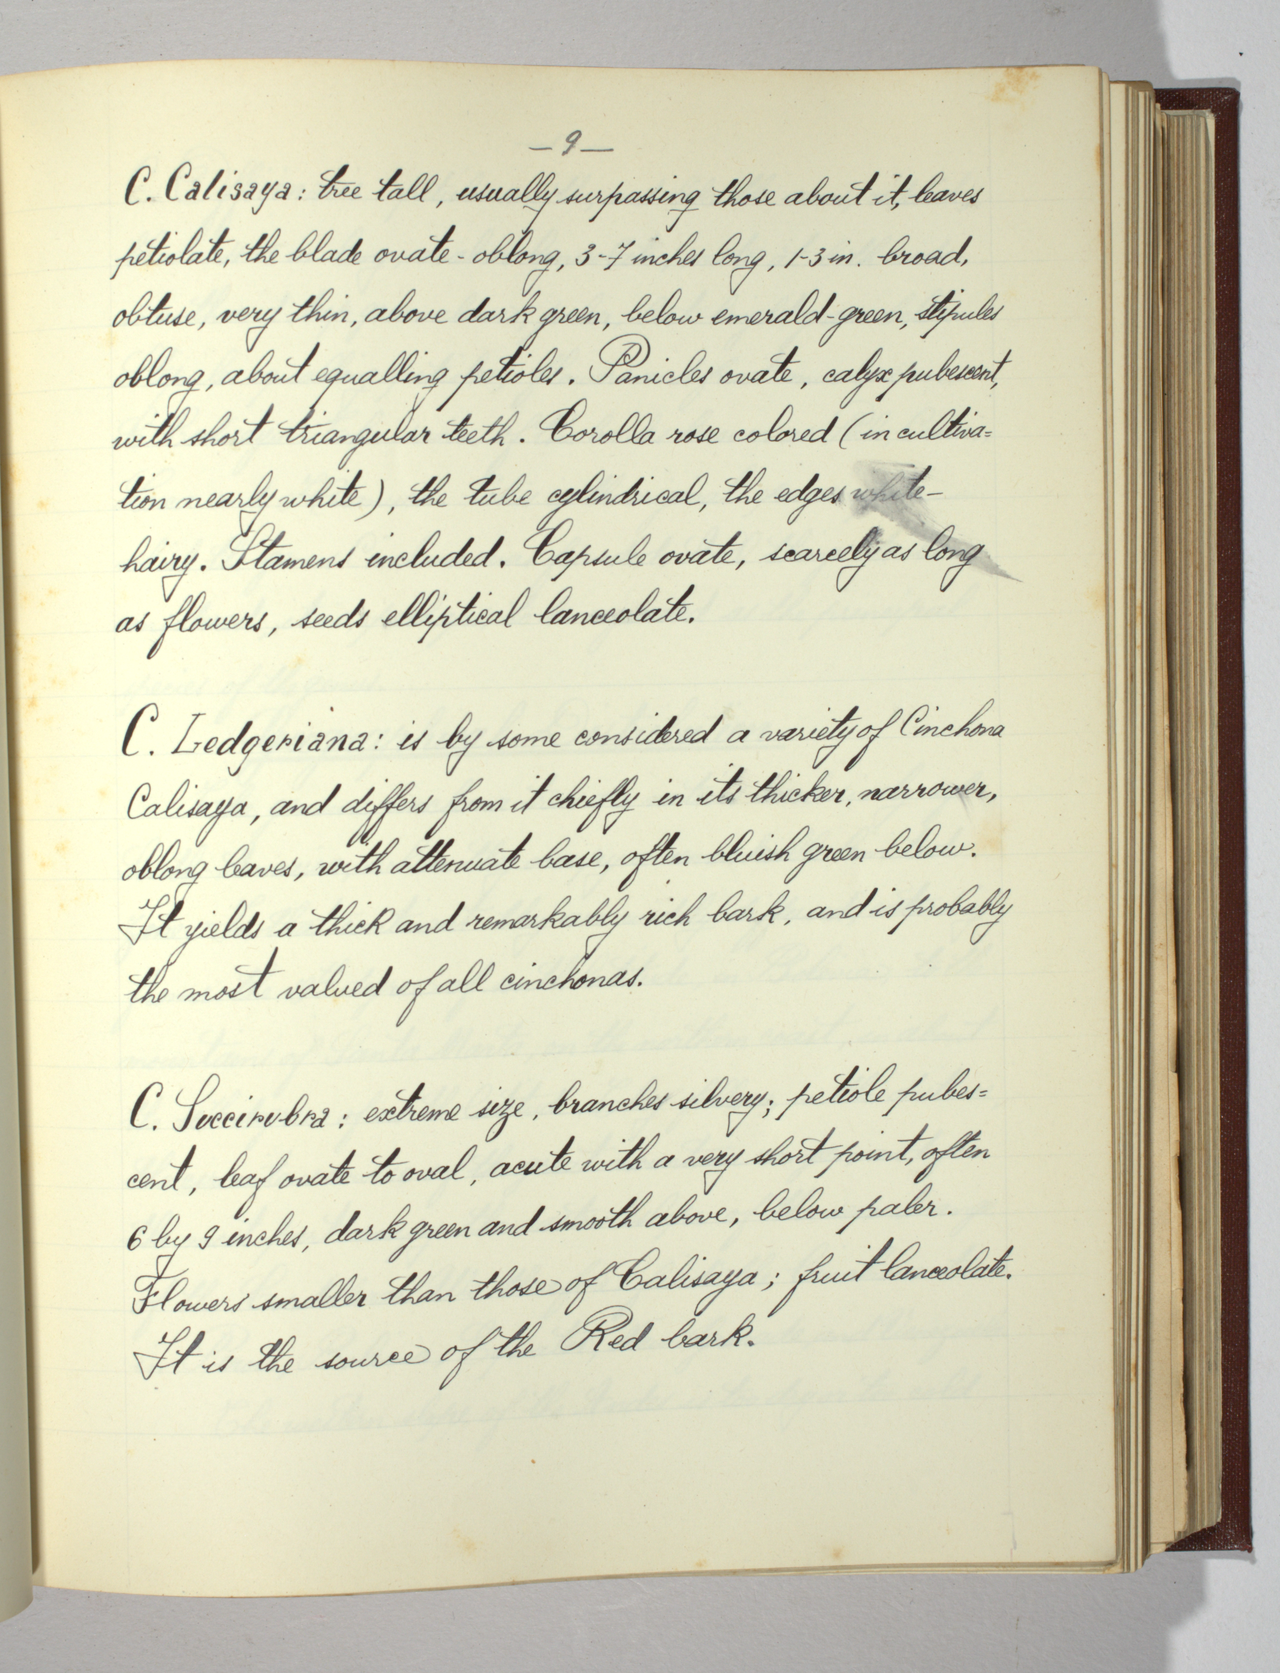 —9—
C. Calisaya: tree tall, usually surpassing those about it, leaves
petiolate, the blade ovate-oblong, 3-7 inches long, 1-3 in. broad,
obtuse, very thin, above dark green, below emerald-green, stipules
oblong, about equalling petioles. Panicles ovate, calyx pubescent,
with short triangular teeth. Corolla rose colored (in cultiva=
tion nearly white), the tube cylindrical, the edges white-
hairy. Stamens included. Capsule ovate, scarcely as long
as flowers, seeds elliptical lanceolate.
C. Ledgeriana: is by some considered a variety of Cinchona
Calisaya, and differs from it chiefly in its thicker, narrower,
oblong leaves, with attenuate base, often bluish green below.
It yields a thick and remarkably rich bark, and is probably
the most valued of all cinchonas.
C. Succirubra: extreme size, branches silvery; petiole pubes=
cent, leaf ovate to oval, acute with a very short point, often
6 by 9 inches, dark green and smooth above, below paler.
Flowers smaller than those of Calisaya; fruit lanceolate.
It is the source of the Red bark.